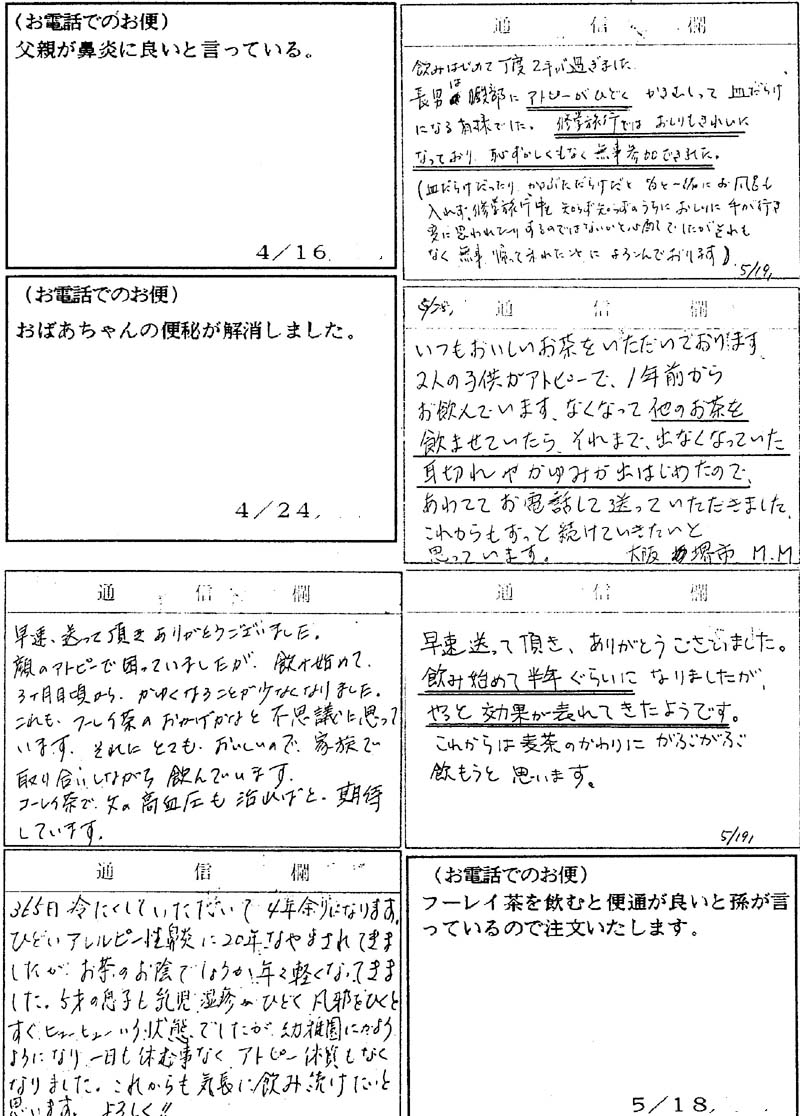 (お電話でのお便)
父親が鼻炎に良いと言っている。
4/16
通信欄
飲みはじめて丁度2年が過ぎました
長男は臀部にアトピーがひどくかきむしって血だらけ
になる有様でした。修学旅行ではおしりもきれいに
なっており恥ずかしくもなく無事参加できました。
(血だらけだったりかさぶただらけだと皆と一緒にお風呂も
入れず、修学旅行中も知らず知らずのうちにおしりに手が行き
変に思われたりするのではないかと心配でしたがそれも
なく無事帰って来れたことによろこんでおります)
5/19,
(お電話でのお便)
おばあちゃんの便秘が解消しました。
4/24.
通信欄
いつもおいしいお茶をいただいております。
2人の子供がアトピーで、1年前から
お飲んでいます、なくなって他のお茶を
飲ませていたら、それまで、出なくなっていた
耳切れやかゆみが出はじめたので、
あわててお電話して送っていただきました、
これからもずっと続けていきたいと
思っています。 大阪 堺市 M.M
通信欄
早速、送って頂きありがとうございました。
顔のアトピーで困っていましたが、飲み始めて、
3ヶ月目頃から、かゆくなることが少なくなりました。
これも、フーレイ茶のおかげかなと不思議に思って
います。それにとても、おいしいので、家族で
取り合いしながら飲んでいます。
フーレイ茶で、父の高血圧も治ればと、期待
しています。
通信欄
早速送って頂き、ありがとうございました。
飲み始めて半年ぐらいになりましたが、
やっと効果が表れてきたようです。
これからは麦茶のかわりにがぶがぶ
飲もうと思います。
5/19,
通信欄
365日冷たくしていただいて4年余りになります。
ひどいアレルピー性鼻炎に20年なやまされてきま
したがお茶のお陰でしょうか年々軽くなってきま
した。5才の息子も乳児湿疹がひどく風邪をひくと
すぐヒューヒューいう状態でしたが幼稚園にかよう
ようになり一日も休む事なくアトピー体質もなく
なりました。これからも気長に飲み続けたいと
思います。よろしく!!
(お電話でのお便)
フーレイ茶を飲むと便通が良いと孫が言
っているので注文いたします。
5/18